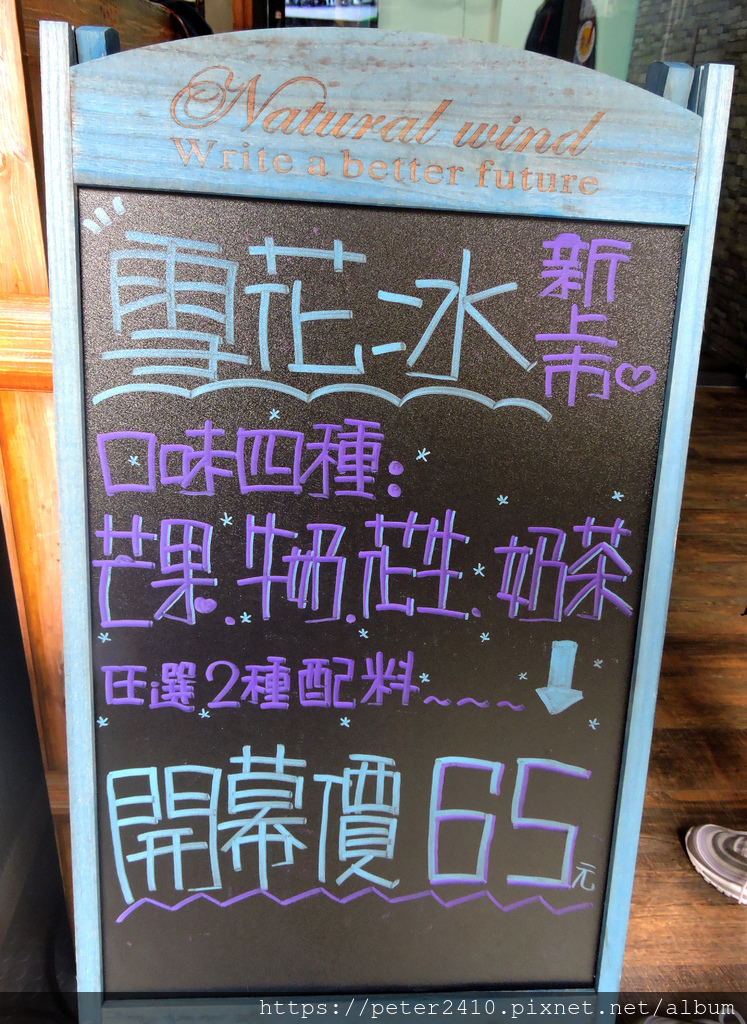 Natural wind
Write a better future
雪花冰
新上市
口味四種:
芒果.牛奶.花生.奶茶
任選2種配料~~~~
開幕價65元
https://peter2410.pixnet.net/album